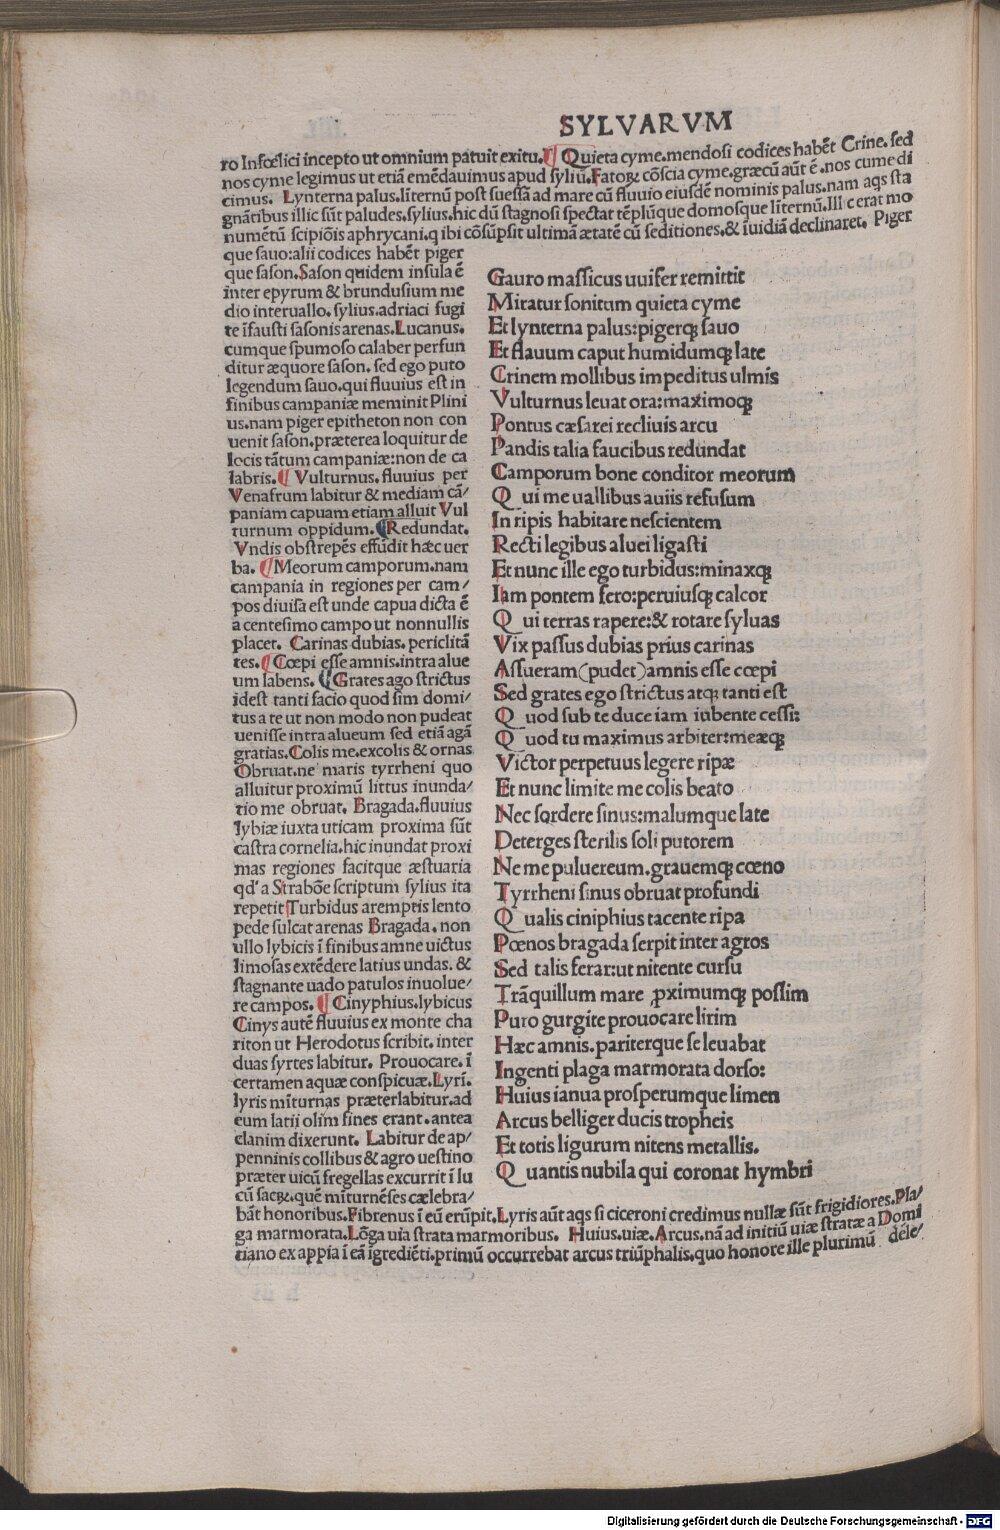 SYLVARVM
ro Infœlici incepto ut omnium patuit exitu.¶ Quieta cyme.mendosi codices habēt Crine.sed
nos cyme legimus ut etiā emēdauimus apud syliū.Fatoꝝ cōscia cyme.græcū aūt ē.nos cume di
cimus. Lynterna palus.līternū post suessā ad mare cū fluuio eiusdē nominis palus.nam aqs sta
gnātibus illic sūt paludes.sylius.hic dū stagnosi spectat tēplūque domosque līternū.Illic erat mo
numētū scipiōis aphrycani.q ibi cōsūpsit ultimā ætatē cū seditiones.& īuidiā declinaret. Piger
que sauo:alii codices habēt piger
que sason.Sason quidem insula ē
inter epyrum & brundusium me
dio interuallo.sylius.adriaci fugi
te īfausti sasonis arenas.Lucanus.
cumque spumoso calaber perfun
ditur æquore sason. sed ego puto
legendum sauo.qui fluuius est in
finibus campaniæ meminit Plini
us.nam piger epitheton non con
uenit sason.præterea loquitur de
locis tātum campaniæ:non de ca
labris.¶ Vulturnus.fluuius per
Venafrum labitur & mediam cā/
paniam capuam etiam alluit Vul
turnum oppidum.¶Redundat.
Vndis obstrepēs effūdit hæc uer
ba. ¶Meorum camporum.nam
campania in regiones per cam/
pos diuisa est unde capua dicta ē
a centesimo campo ut nonnullis
placet. Carinas dubias. periclitā
tes.¶ Cœpi esse amnis.intra alue
um labens. ¶Grates ago strictus
idest tanti facio quod sim domi/
tus a te ut non modo non pudeat
uenisse intra alueum sed etiā agā
gratias.Colis me.excolis & ornas
Obruat.ne maris tyrrheni quo
alluitur proximū littus inunda/
tio me obruat. Bragada.fluuius
lybiæ iuxta uticam proxima sūt
castra cornelia.hic inundat proxi
mas regiones facitque æstuaria
qd' a Strabōe scriptum sylius ita
repetit Turbidus aremptis lento
pede sulcat arenas Bragada. non
ullo lybicis ī finibus amne uictus
limosas extēdere latius undas. &
stagnante uado patulos inuolue/
re campos. ¶ Cinyphius.lybicus
Cinys autē fluuius ex monte cha
riton ut Herodotus scribit. inter
duas syrtes labitur. Prouocare.ī
certamen aquæ conspicuæ.Lyrī.
lyris mīturnas præterlabitur.ad
eum latii olim fines erant.antea
clanim dixerunt. Labitur de ap/
penninis collibus & agro uestino
præter uicū fregellas excurrit ī lu
cū sacꝝ.quē mīturnēses cælebra/
Gauro massicus uuifer remittit
Miratur sonitum quieta cyme
Et lynterna palus:pigerqꝫ sauo
Et flauum caput humidumqꝫ late
Crinem mollibus impeditus ulmis
Vulturnus leuat ora:maximoqꝫ
Pontus cæsarei recliuis arcu
Pandis talia faucibus redundat
Camporum bone conditor meorum
Q ui me uallibus auiis refusum
In ripis habitare nescientem
Recti legibus aluei ligasti
Et nunc ille ego turbidus:minaxqꝫ
Iam pontem fero:peruiusqꝫ calcor
Q ui terras rapere:& rotare syluas
Vix passus dubias prius carinas
Assueram(pudet)amnis esse cœpi
Sed grates ego strictus atqꝫ tanti est
Q uod sub te duce iam iubente cessi:
Q uod tu maximus arbiter:meæqꝫ
Victor perpetuus legere ripæ
Et nunc limite me colis beato
Nec sordere sinus:malumque late
Deterges sterilis soli putorem
Ne me puluereum.grauemqꝫ cœno
Tyrrheni sinus obruat profundi
Q ualis ciniphius tacente ripa
Pœnos bragada serpit inter agros
Sed talis ferar:ut nitente cursu
Trāquillum mare ꝓximumqꝫ possim
Puro gurgite prouocare lirim
Hæc amnis.pariterque se leuabat
Ingenti plaga marmorata dorso:
Huius ianua prosperumque limen
Arcus belliger ducis tropheis
Et totis ligurum nitens metallis.
Q uantis nubila qui coronat hymbri
bāt honoribus.Fibrenus ī eū erūpit.Lyris aūt aqs si ciceroni credimus nullæ sūt frigidiores.Pla/
ga marmorata.Lōga uia strata marmoribus. Huius.uiæ.Arcus.nā ad initiū uiæ stratæ a Domi
tiano ex appia ī eā īgrediēti.primū occurrebat arcus triūphalis.quo honore ille plurimū dele/
Digitalisierung gefördert durch die Deutsche Forschungsgemeinschaft - DFG